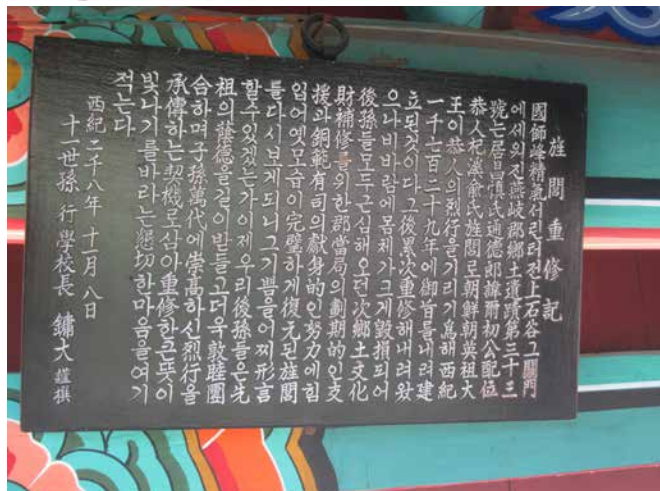 旌閭重修記
國師峰精氣서린터전上石谷그關門
에세의진燕岐郡鄕土遺蹟第三十三
號는居昌愼氏通德郞諱爾初公配位
恭人杞溪兪氏旌閭로朝鮮朝英祖大
王이恭人의烈行을기리기爲해西紀
一千七百二十九年에御旨를내려建
立된것이다그後累次重修해내려왔
으나비바람에몸체가크게毁損되어
後孫들모두근심해오던次鄕土文化
財補修를위한郡當局의劃期的인支
援과銅範有司의獻身的인努力에힘
입어옛모습이完璧하게復元된旌閭
를다시보게되니그기쁨을어찌形言
할수있겠는가이제우리後孫들은先
祖의蔭德을길이받들고더욱敦睦團
合하며子孫萬代에崇高하신烈行을
承傳하는契機로심아重修한큰뜻이
빛나기를바라는懇切한마음을여기
적는다
西紀二千八年十一月八日
十一世孫 行學校長 鏞大 謹撰